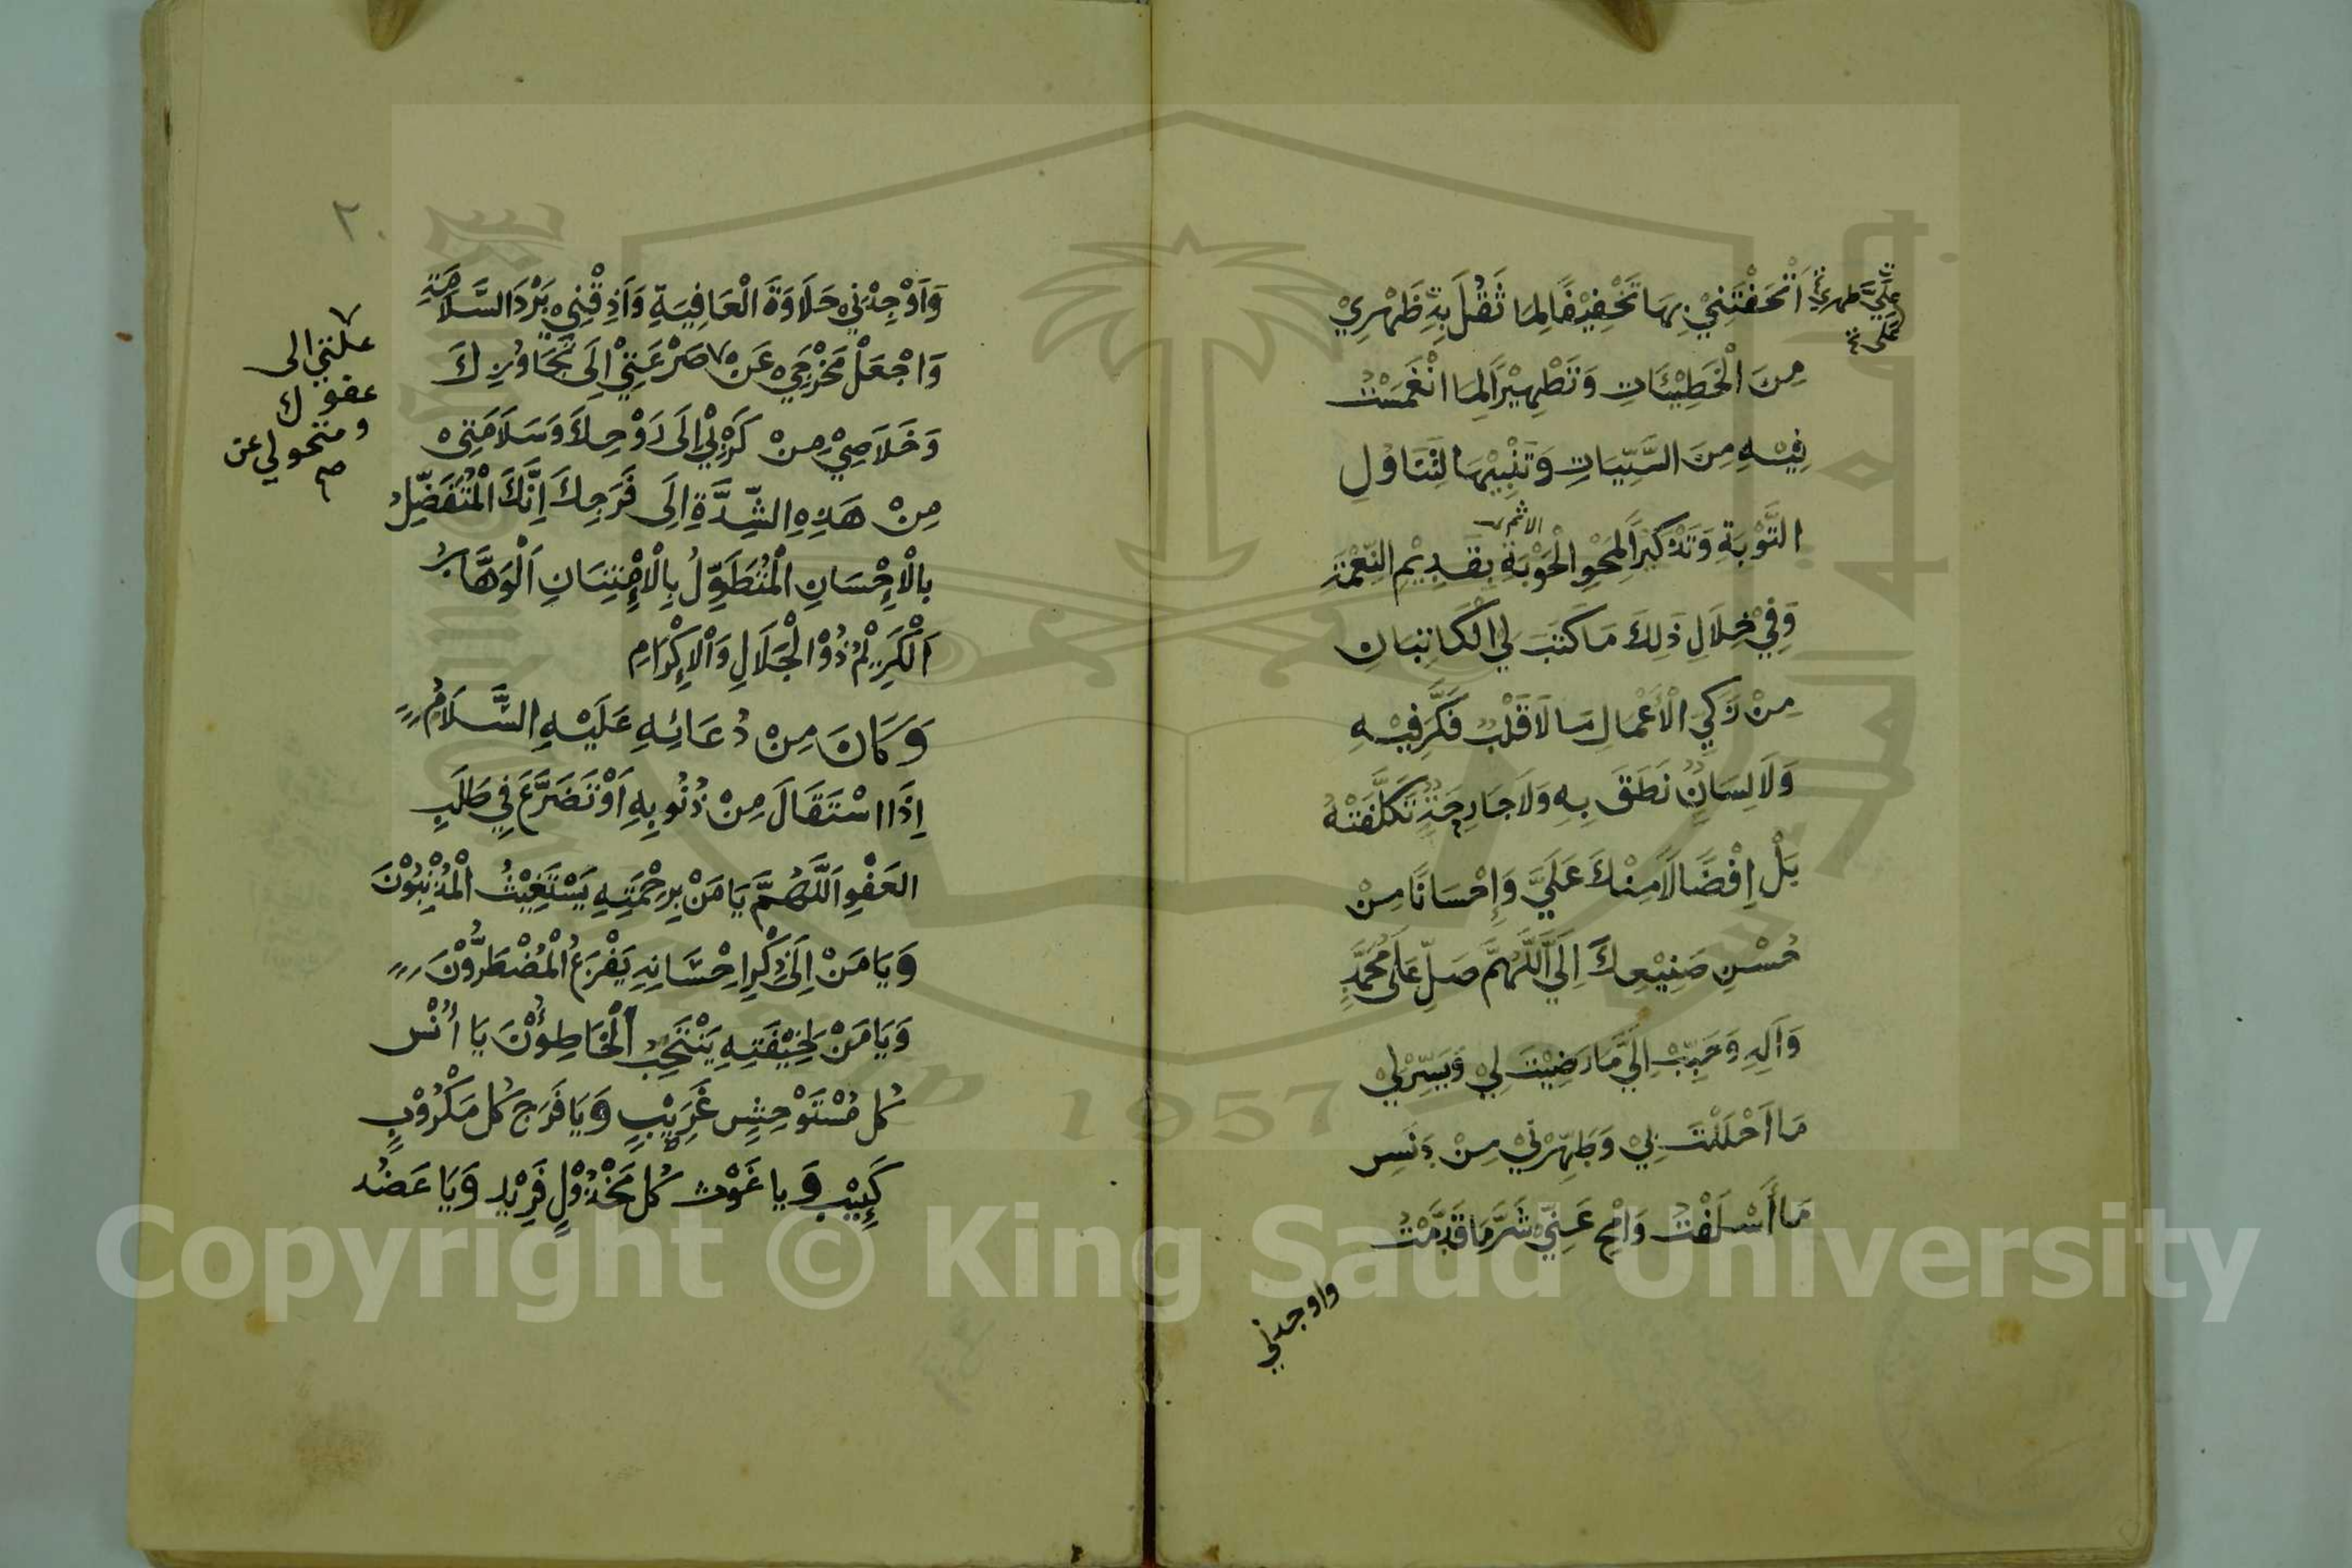 أَتْحَفْتَنِيْ بِهَا تَخْفِيْفًا لِمَا ثَقُلَ بِهِ ظَهْرِيْ
عَلَيَّ ظهري
مِنَ الْخَطِيْئَاتِ وَتَطْهِيْرًا لِمَا انْغَمَسْتُ
فِيْهِ مِنَ السَّيِّئَاتِ وَتَنْبِيْهًا لِتَنَاوُلِ
الاثم
التَّوْبَةِ وَتَذْكِيْرًا لِمَحْوِ الْحَوْبَةِ بِقَدِيْمِ النِّعْمَةِ
وَفِيْ خِلَالِ ذَلِكَ مَا كَتَبَ لِيَ الْكَاتِبَانِ
مِنْ زَكِيِّ الْأَعْمَالِ مَا لَا قَلْبٌ فَكَّرَ فِيْهِ
وَلَا لِسَانٌ نَطَقَ بِهِ وَلَا جَارِحَةٌ تَكَلَّفَتْهُ
بَلْ إِفْضَالًا مِنْكَ عَلَيَّ وَإِحْسَانًا مِنْ
حُسْنِ صَنِيْعِكَ إِلَيَّ اَللَّهُمَّ صَلِّ عَلَى مُحَمَّدٍ
وَآلِهِ وَحَبِّبْ إِلَيَّ مَا رَضِيْتَ لِيْ وَيَسِّرْ لِيْ
مَا أَحْلَلْتَ بِيْ وَطَهِّرْنِيْ مِنْ دَنَسِ
مَا أَسْلَفْتُ وَامْحُ عَنِّيْ شَرَّ مَا قَدَّمْتُ
واوجدني
٢٠
وَأَوْجِدْنِيْ حَلَاوَةَ الْعَافِيَةِ وَأَذِقْنِيْ بَرْدَ السَّلَامَةِ
وَاجْعَلْ مَخْرَجِيْ عَنْ صَرْعَتِيْ إِلَى تَجَاوُزِكَ
علتي الى
عفوك
ومتحولي عن
صح
وَخَلَاصِيْ مِنْ كَرْبِيْ إِلَى رَوْحِكَ وَسَلَامَتِيْ
مِنْ هَذِهِ الشِّدَّةِ إِلَى فَرَجِكَ إِنَّكَ الْمُتَفَضِّلُ
بِالْإِحْسَانِ الْمُتَطَوِّلُ بِالْإِمْتِنَانِ اَلْوَهَّابُ
اَلْكَرِيْمُ ذُوْ الْجَلَالِ وَالْإِكْرَامِ
وَكَانَ مِنْ دُعَائِهِ عَلَيْهِ السَّلَامُ
إِذَا اسْتَقَالَ مِنْ ذُنُوبِهِ أَوْ تَضَرَّعَ فِيْ طَلَبِ
العَفْوِ اَللَّهُمَّ يَا مَنْ بِرَحْمَتِهِ يَسْتَغِيْثُ الْمُذْنِبُوْنَ
وَيَا مَنْ إِلَى ذِكْرِ إِحْسَانِهِ يَفْزَعُ الْمُضْطَرُّوْنَ
وَيَا مَنْ لِخِيْفَتِهِ يَنْتَحِبُ الْخَاطِئُوْنَ يَا أُنْسَ
كُلِّ مُسْتَوْحِشٍ غَرِيْبٍ وَيَا فَرَجَ كُلِّ مَكْرُوْبٍ
كَئِيْبٍ وَيَا غَوْثَ كُلِّ مَخْذُوْلٍ فَرِيْدٍ وَيَا عَضُدَ
1957
Copyright © King Saud University